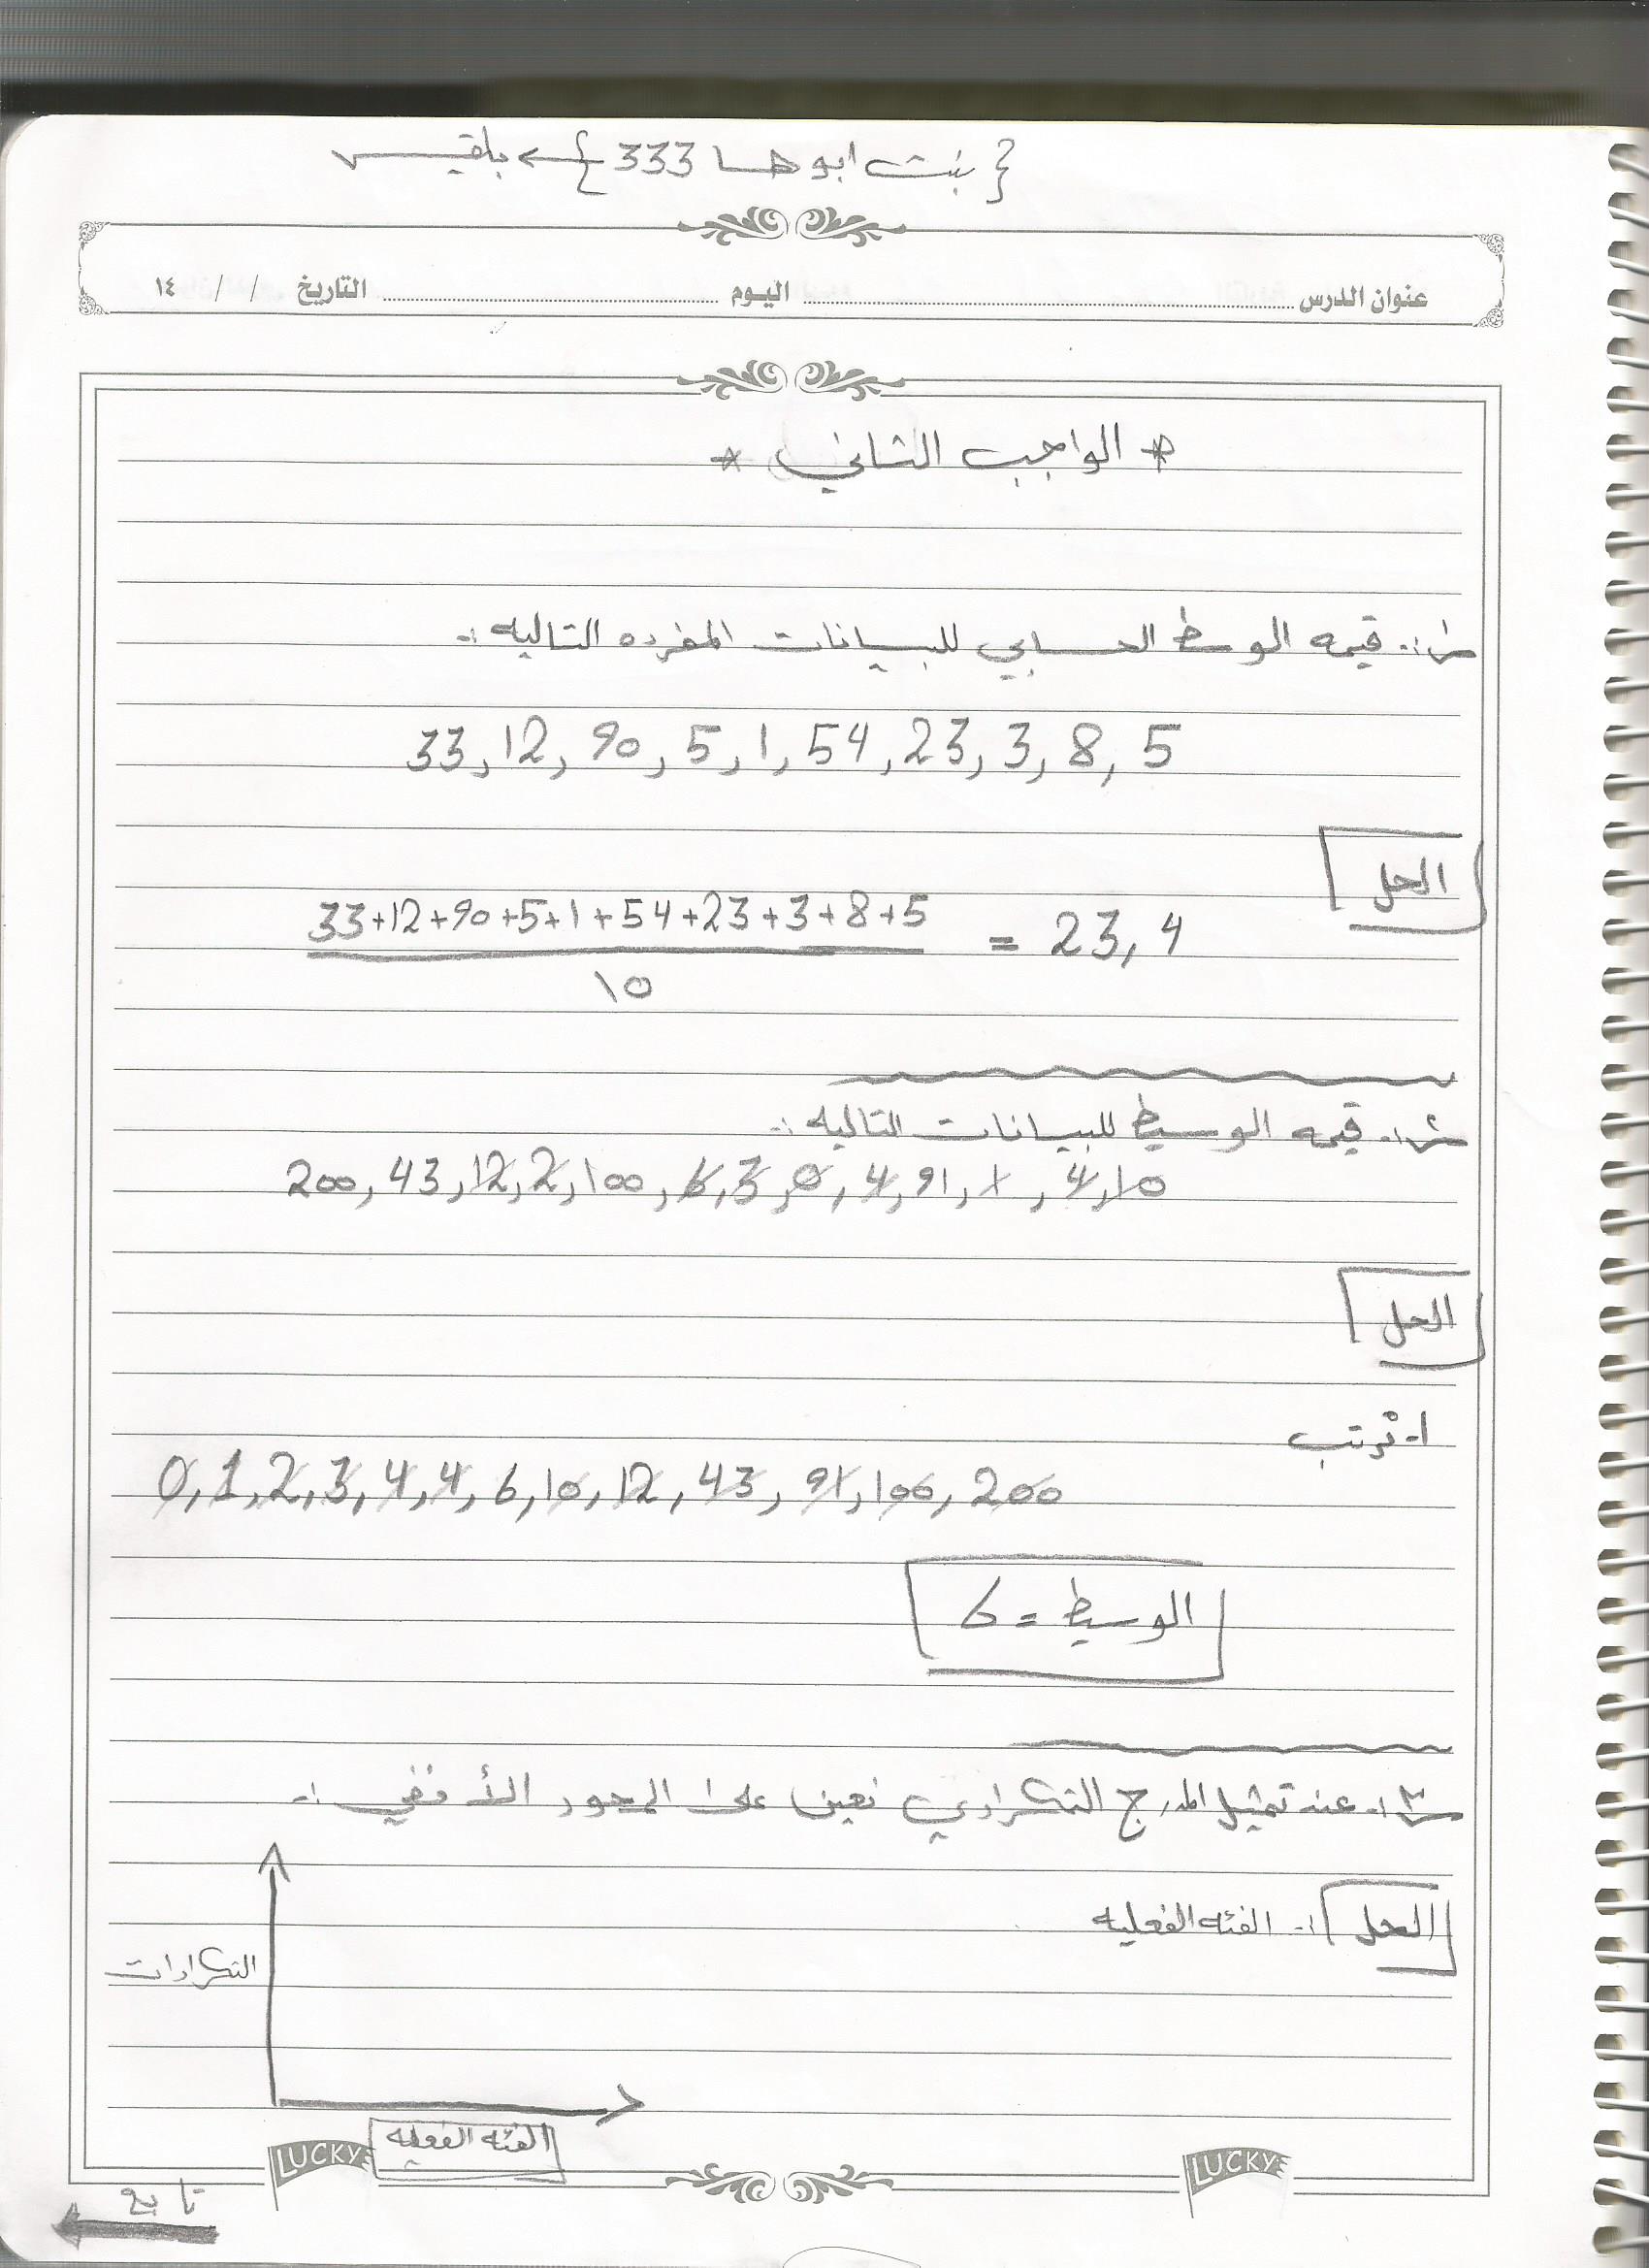 { بنت ابوها 333 } ← بلقيس
عنوان الدرس اليوم التاريخ / / ١٤
* الواجب الثاني *
س١:- قيمه الوسط الحسابي للبيانات المفرده التاليه :-
33, 12, 90, 5, 1, 54, 23, 3, 8, 5
الحل
33+12+90+5+1+54+23+3+8+5 = 23,4
10
س٢:- قيمه الوسيط للبيانات التاليه :-
200, 43, 12, 2, 100, 6, 3, 0, 4, 91, 1, 4, 10
الحل
١- نرتب
0, 1, 2, 3, 4, 4, 6, 10, 12, 43, 91, 100, 200
الوسيط = 6
س٣:- عند تمثيل المدرج التكراري نعين على المحور الأفقي :-
الحل :- الفئه الفعليه
التكرارات
الفئه الفعليه
LUCKY LUCKY
تابع